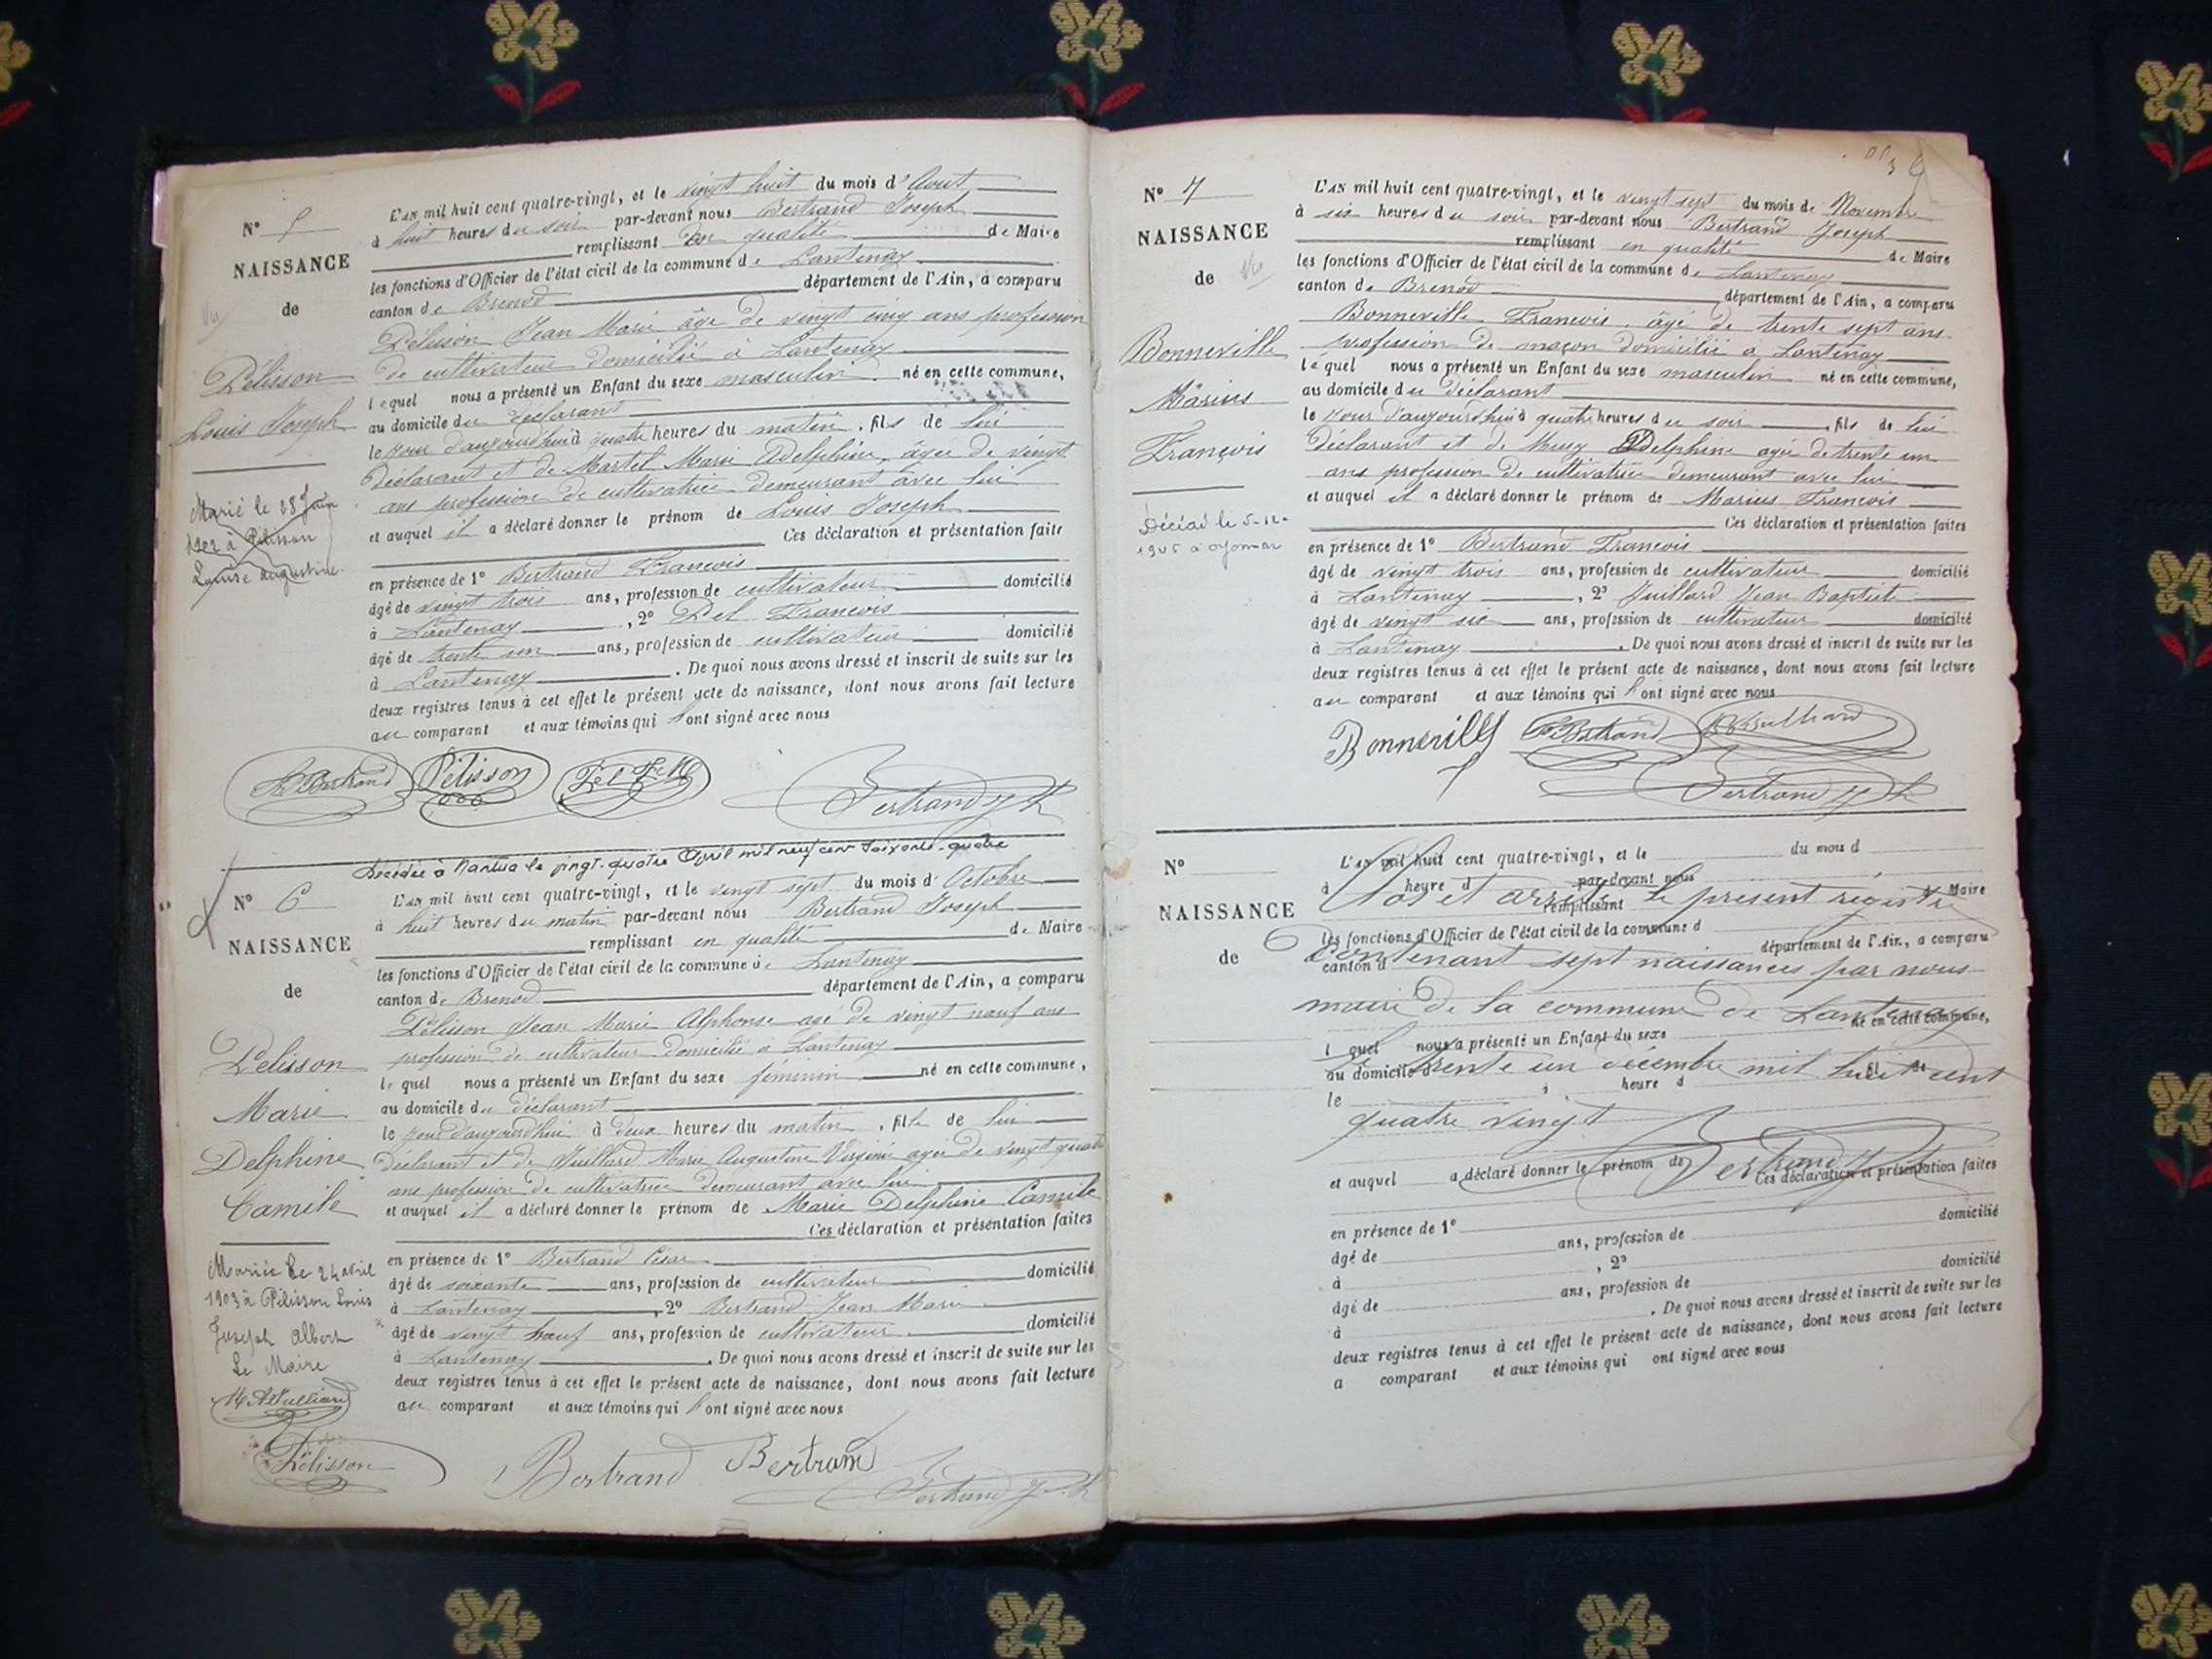 N° 5
NAISSANCE
de
Pélisson
Louis Joseph
Marié le 28 Juin
à Pélisson
Louise Augustine
L'AN mil huit cent quatre-vingt, et le vingt huit du mois d'Aout
à huit heures du soir par-devant nous Bertrand Joseph
remplissant en qualité de Maire
les fonctions d'Officier de l'état civil de la commune de Lantenay
canton de Brenod département de l'Ain, a comparu
Pélisson Jean Marie âgé de vingt cinq ans profession
de cultivateur domicilié à Lantenay
lequel nous a présenté un Enfant du sexe masculin né en cette commune,
au domicile du déclarant
le jour d'aujourd'hui à quatre heures du matin, fils de lui
déclarant et de Martel Marie Adelphine, âgée de vingt
ans profession de cultivatrice demeurant avec lui
et auquel il a déclaré donner le prénom de Louis Joseph
Ces déclaration et présentation faite
en présence de 1° Bertrand Francois
âgé de vingt trois ans, profession de cultivateur domicilié
à Lantenay, 2° Pel Francois
âgé de trente un ans, profession de cultivateur domicilié
à Lantenay. De quoi nous avons dressé et inscrit de suite sur les
deux registres tenus à cet effet le présent acte de naissance, dont nous avons fait lecture
au comparant et aux témoins qui l'ont signé avec nous
Bertrand Pélisson Pel Bertrand Jh
Décédée à Nantua le vingt-quatre Avril mil neuf cent soixante-quatre
N° 6
NAISSANCE
de
Pelisson
Marie
Delphine
Camile
Mariée le 24 avril
1903 à Pélisson Louis
Joseph Albert
Le Maire
L'AN mil huit cent quatre-vingt, et le vingt sept du mois d'Octobre
à huit heures du matin par-devant nous Bertrand Joseph
remplissant en qualité de Maire
les fonctions d'Officier de l'état civil de la commune de Lantenay
canton de Brenod département de l'Ain, a comparu
Pélisson Jean Marie Alphonse agé de vingt neuf ans
profession de cultivateur domicilié à Lantenay
lequel nous a présenté un Enfant du sexe féminin né en cette commune,
au domicile du déclarant
le jour d'aujourd'hui à deux heures du matin, fille de lui
déclarant et de Juillard Marie Augustine Virginie agée de vingt quatre
ans profession de cultivatrice demeurant avec lui
et auquel il a déclaré donner le prénom de Marie Delphine Camile
Ces déclaration et présentation faites
en présence de 1° Bertrand César
âgé de soixante ans, profession de cultivateur domicilié
à Lantenay, 2° Bertrand Jean Marie
âgé de vingt neuf ans, profession de cultivateur domicilié
à Lantenay. De quoi nous avons dressé et inscrit de suite sur les
deux registres tenus à cet effet le présent acte de naissance, dont nous avons fait lecture
au comparant et aux témoins qui l'ont signé avec nous
Pélisson Bertrand Bertrand Bertrand Jh
N° 7
NAISSANCE
de
Vu
Bonneville
Marius
François
Décédé le 5-12-
1905 à Oyonnax
L'AN mil huit cent quatre-vingt, et le vingt sept du mois de Novembre
à six heures du soir par-devant nous Bertrand Joseph
remplissant en qualité de Maire
les fonctions d'Officier de l'état civil de la commune de Lantenay
canton de Brenod département de l'Ain, a comparu
Bonneville Francois, âgé de trente sept ans
profession de maçon domicilié a Lantenay
lequel nous a présenté un Enfant du sexe masculin né en cette commune,
au domicile du déclarant
le jour d'aujourd'hui à quatre heures du soir, fils de lui
déclarant et de Delphine agée de trente un
ans profession de cultivatrice demeurant avec lui
et auquel il a déclaré donner le prénom de Marius Francois
Ces déclaration et présentation faites
en présence de 1° Bertrand Francois
âgé de vingt trois ans, profession de cultivateur domicilié
à Lantenay, 2° Juillard Jean Baptiste
âgé de vingt six ans, profession de cultivateur domicilié
à Lantenay. De quoi nous avons dressé et inscrit de suite sur les
deux registres tenus à cet effet le présent acte de naissance, dont nous avons fait lecture
au comparant et aux témoins qui l'ont signé avec nous
Bonneville Bertrand Juilliard
Bertrand Jh
N°
NAISSANCE
de
L'AN mil huit cent quatre-vingt, et le du mois d
à heure d par-devant nous
Clos et arrêté le present registre
remplissant de Maire
les fonctions d'Officier de l'état civil de la commune d
contenant sept naissances par nous
canton d département de l'Ain, a comparu
maire de la commune de Lantenay
l quel nous a présenté un Enfant du sexe né en cette commune,
le trente un décembre mil huit cent
au domicile d
le à heure d fil de
quatre vingt
Bertrand Jh
et auquel a déclaré donner le prénom de
Ces déclaration et présentation faites
en présence de 1°
âgé de ans, profession de domicilié
à , 2°
âgé de ans, profession de domicilié
à . De quoi nous avons dressé et inscrit de suite sur les
deux registres tenus à cet effet le présent acte de naissance, dont nous avons fait lecture
a comparant et aux témoins qui ont signé avec nous